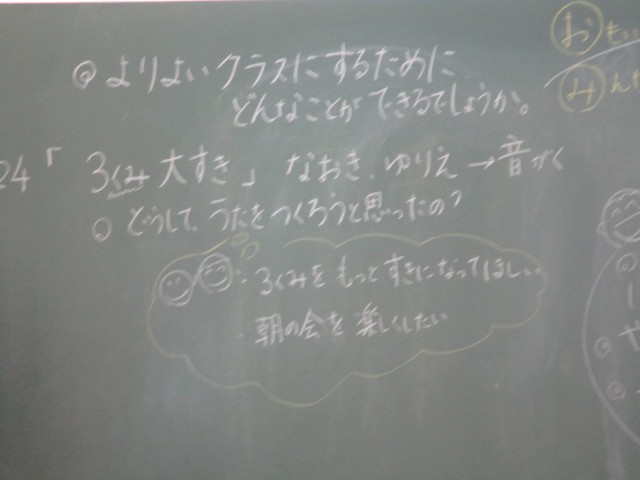 ◎よりよいクラスにするために
どんなことができるでしょうか。
24「3くみ大すき」なおき、ゆりえ→音がく
○どうして、うたをつくろうと思ったの?
・3くみをもっとすきになってほしい
・朝の会を楽しくしたい
お もい
み んな